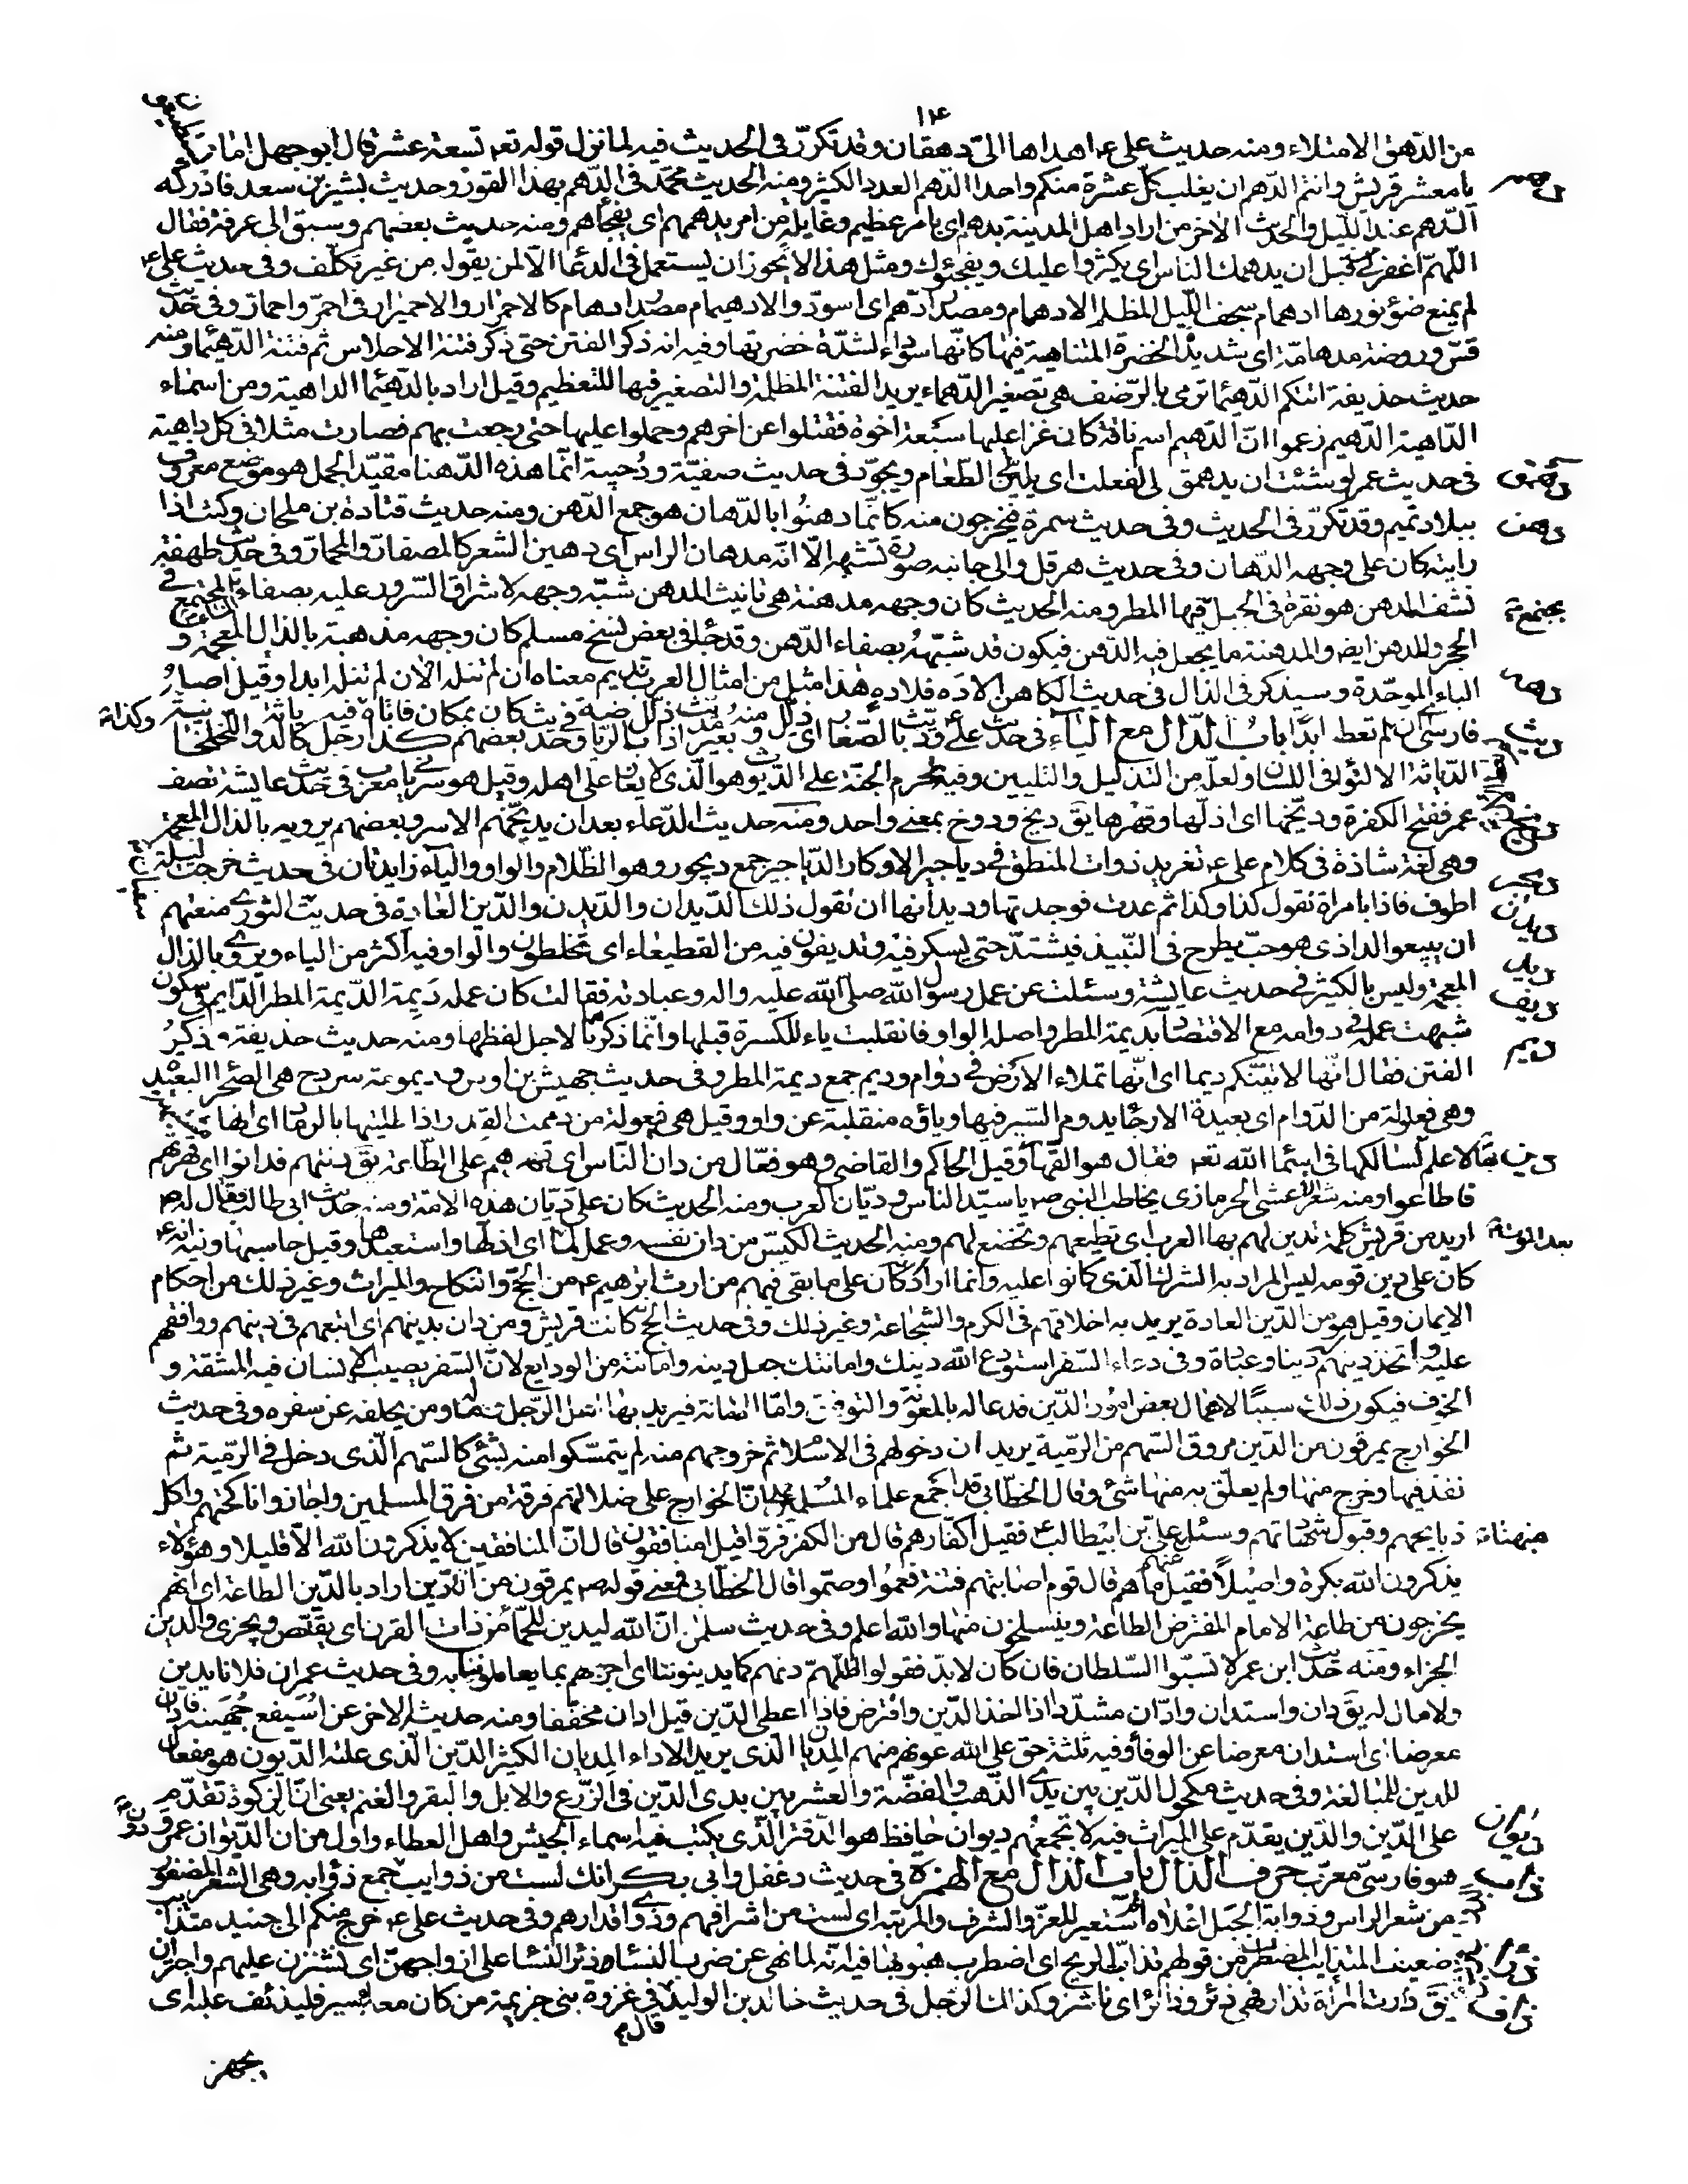 ١٢٤
من الدّهق الامتلاء ومنه حديث على ع اهداها الىّ دهقان وقد تكرّر فى الحديث فيه لما نزل قوله تع تسعة عشر قال ابو جهل اما
دهم
يا معشر قريش وانتم الدّهم ان يغلب كلّ عشرة منكم واحدا الدّهم العدد الكثير ومنه الحديث محمّد فى الدّهم بهذا القوز وحديث بشير بن سعد فادركه
الدّهم عند اللّيل والحديث الاخر من اراد اهل المدينة بدهم اى بامر عظيم وغايلة من امر يدهمهم اى يفجأهم ومنه حديث بعضهم وسبق الى عرفة فقال
اللّهمّ اغفر لى قبل ان يدهمك الناس اى يكثروا عليك ويفجئوك ومثل هذا لا يجوز ان يستعمل فى الدعا الّا لمن يقول من غير تكلّف وفى حديث على ع
لم يمنع ضوء نورها ادهمام سجف اللّيل المظلم الادهمام مصدر ادهمّ اى اسودّ والادهيمام مصدر ادهامّ كالاحمرار والاحميرار فى احمرّ واحمارّ وفى حديث
قسّ وروضة مدهامّة اى شديدة الخضرة المتناهية فيها كانّها سوداء لشدّة خضرتها وفيه انه ذكر الفتن حتى ذكر فتنة الاحلاس ثم فتنة الدّهيما ومنه
حديث حذيفة اتتكم الدّهيما ترمى بالرّضف هى تصغير الدّهماء يريد الفتنة المظلمة والتصغير فيها للتعظيم وقيل اراد بالدّهيما الداهية ومن اسماء
الدّاهية الدّهيم زعموا انّ الدّهيم اسم ناقة كان غزا عليها سبعة اخوة فقتلوا عن اخرهم وحملوا عليها حتى رجعت بهم فصارت مثلا فى كل داهية
دهمق
فى حديث عمر لو شئت ان يدهمق لى لفعلت اى يليّن لى الطّعام ويجوّد فى حديث صفيّة ودُحيبة انّما هذه الدّهنا مقيّد الجمل هو موضع معروف
دهن
ببلاد تميم وقد تكرّر فى الحديث وفى حديث سمرة فيخرجون منه كانّما دهنوا بالدّهان هو جمع الدّهن ومنه حديث قتادة بن ملحان وكنت اذا
رايته كان على وجهه الدّهان وفى حديث هرقل والى جانبه صورة تشبهه الّا انّه مدهانّ الراس اى دهين الشعر كالمصفارّ والمحمارّ وفى حديث طهفة
نشف المدهن هو نقرة فى الجبل فيها المطر ومنه الحديث كان وجهه مدهنة هى تانيث المدهن شبّه وجهه لاشراق السّرور عليه بصفاء الماء المجتمع فى
الحجر والمدهن ايضا والمدهنة ما يجعل فيه الدّهن فيكون قد شبّهه بصفاء الدّهن وقد جاء فى بعض نسخ مسلم كان وجهه مذهبة بالذال المعجمة و
دهده
الباء الموحّدة وسيذكر فى الذال فى حديث الكاهن الّا دَهٍ فلا دَهٍ هذا مثل من امثال العرب قديم معناه ان لم تنله الآن لم تنله ابدا وقيل اصله
ديث
فارسىّ اى ان لم تعط ابدا باب الدّال مع الياء فى حديث على ع وديّث بالصّغار اى ذلّل ومنه بعير مديّث
الدّياثة الالتواء فى اللسان ولعلّه من التذليل والتليين وفيه تحرم الجنّة على الدّيّوث هو الّذى لا يغار على اهله وقيل هو سريانى معرّب فى حديث عايشة تصف
ديخ
عمر ففتح الكفرة وديّخها اى اذلّها وقهرها يق ديّخ ودوّخ بمعنى واحد ومنه حديث الدّعاء بعد ان يديّخهم الاسر وبعضهم يرويه بالذال المعجمة
ديجر
وهى لغة شاذة فى كلام على ع تغريد ذوات المنطق فى دياجير الاوكار الدّياجير جمع ديجور وهو الظّلام والواو والياء زايدتان فى حديث خرجت ليلة
اطوف فاذا بامراة تقول كذا وكذا ثم عدت فوجدتها وديدانها ان تقول ذلك الدّيدان والدّيدن والدّين العادة فى حديث الثورى منعتهم
ان يبيعوا الداذى هو حبّ يطرح فى النّبيذ فيشتدّ حتى يسكر فيه وتديفون فيه من القطيعاء اى تخلطون والواو فيه اكثر من الياء ويروى بالذال
ديف
المعجمة وليس بالكثير فى حديث عايشة وسئلت عن عمل رسول الله صلى الله عليه واله وعبادته فقالت كان عمله ديمة الدّيمة المطر الدّايم فى سكون
ديم
شبهت عمله فى دوامه مع الاقتصاد بديمة المطر واصله الواو فانقلبت ياء للكسرة قبلها وانّما ذكرناها لاجل لفظها ومنه حديث حذيفة وذكر
الفتن فقال انّها لاتيتكم ديما اى انّها تملاء الارض فى دوام وديم جمع ديمة المطر وفى حديث جهيش بن اوس وديمومة سردح هى الصّحرا البعيدة
وهى فعلولة من الدّوام اى بعيدة الارجاء يدوم السّير فيها وياؤه منقلبة عن واو وقيل هى فيعولة من دممت القدر اذا طليتها بالرماد اى انّها
دين
لا علم لسالكها فى اسماء الله تع فقال هو القهّار وقيل الحاكم والقاضى وهو فعّال من دان النّاس اى قهرهم على الطّاعة يق دنتهم فدانوا اى قهرتهم
فاطاعوا ومنه شعر الاعشى الحرمازى يخاطب النبى ص يا سيّد الناس وديّان العرب ومنه الحديث كان على ديّان هذه الامّة ومنه حديث ابى طالب قال له ص
اريد من قريش كلمة تدين لهم بها العرب اى تطيعهم وتخضع لهم ومنه الحديث الكيّس من دان نفسه وعمل لما اى اذلّها واستعبدها وقيل حاسبها وفيه انه ع
كان على دين قومه ليس المراد به الشرك الّذى كانوا عليه وانما اراد كان على ما بقى فيهم من ارث ابرهيم ع من الحجّ والنكاح والميراث وغير ذلك من احكام
الايمان وقيل هو من الدّين العادة يريد به اخلاقهم فى الكرم والشجاعة وغير ذلك وفى حديث الحج كانت قريش ومن دان بدينهم اى اتبعهم فى دينهم ووافقهم
عليه واتخذ دينهم دينا وعبادة وفى دعاء السّفر استودع الله دينك وامانتك جعل دينه وامانته من الودايع لانّ السّفر يصيب الانسان فيه المشقة و
الخوف فيكون ذلك سببا لاهمال بعض امور الدّين فدعا له بالمعونة والتوفيق وامّا الامانة فيريد بها اهل الرّجل وماله ومن يخلفه عن سفره وفى حديث
الخوارج يمرقون من الدّين مروق السّهم من الرّمية يريد ان دخولهم فى الاسلام ثم خروجهم منه لم يتمسّكوا منه بشئ كالسّهم الّذى دخل فى الرّمية ثم
نفذ فيها وخرج منها ولم يعلّق به منها شئ وقال الخطّابى قد اجمع علماء المسلمين على انّ الخوارج على ضلالتهم فرقة من فرق المسلمين واجازوا مناكحتهم واكل
ذبايحهم وقبول شهادتهم وسئل عنهم علىّ بن ابيطالب ع فقيل اكفّار هم قال من الكفر فرّوا قيل افمنافقون قال انّ المنافقين لا يذكرون الله الّا قليلا وهؤلاء
يذكرون الله بكرة واصيلاً فقيل ما هم قال قوم اصابتهم فتنة فعموا وصمّوا قال الخطّابى فمعنى قوله ص يمرقون من الدّين اراد بالدّين الطاعة اى انّهم
يخرجون من طاعة الامام المفترض الطاعة وينسلخون منها والله اعلم وفى حديث سلمن انّ الله ليدين للجمّاء من ذات القرن اى يقتصّ ويجزى والدّين
الجزاء ومنه حديث ابن عمر لا تسبّوا السّلطان فان كان لابدّ فقولوا اللّهمّ دنهم كما يدينوننا اى اجزهم بما يعاملونا به وفى حديث عمر ان فلانا يدين
ولا مال له يق دان واستدان وادّان مشدّدا اذا اخذ الدّين واقترض فاذا اعطى الدّين قيل ادان مخفّفا ومنه حديثه الاخر عن اسيفع جهينة فادّان
معرضا اى استدان معرضا عن الوفاء وفيه ثلثة حق على الله عونهم منهم المديان الّذى يريد الاداء المديان الكثير الدّين الّذى علته الدّيون هو مفعال
للدين للمبالغة وفى حديث مكحول الدّين بين يدى الذّهب والفضّة والعشر بين يدى الدّين فى الزّرع والابل والبقر والغنم يعنى انّ الزكوة تقدّم
ديوان
على الدّين والدّين يقدّم على الميراث فيه لا يجمعهم ديوان حافظ هو الدّفتر الّذى يكتب فيه اسماء الجيش واهل العطاء واول من دوّن الدّيوان عمر و
ذاب
هو فارسىّ معرّب حرف الذال باب الذال مع الهمزة فى حديث دغفل وابى بكر انك لست من ذوايب قريش جمع ذؤابه وهى الشعر المضفور
من شعر الراس وذوابة الجبل اعلاه ثم استعير للعزّ والشرف والمرتبه اى لست من اشرافهم وذوى اقدارهم وفى حديث على ع خرج منكم الى جنيد متذايب
ضعيف المتذايب المضطرب من قولهم تذايبت الريح اى اضطرب هبوبها فيه انّه لما نهى عن ضرب النساء ذئر النساء على ازواجهنّ اى نشزن عليهم واجترأن
ذاف
يق ذارت المرأة تذار فهى ذئر وذائر اى ناشز وكذا الرّجل فى حديث خالد بن الوليد فى غزوة بنى جزيمة من كان معه اسير فليذئف عليه اى
قال
يجهز